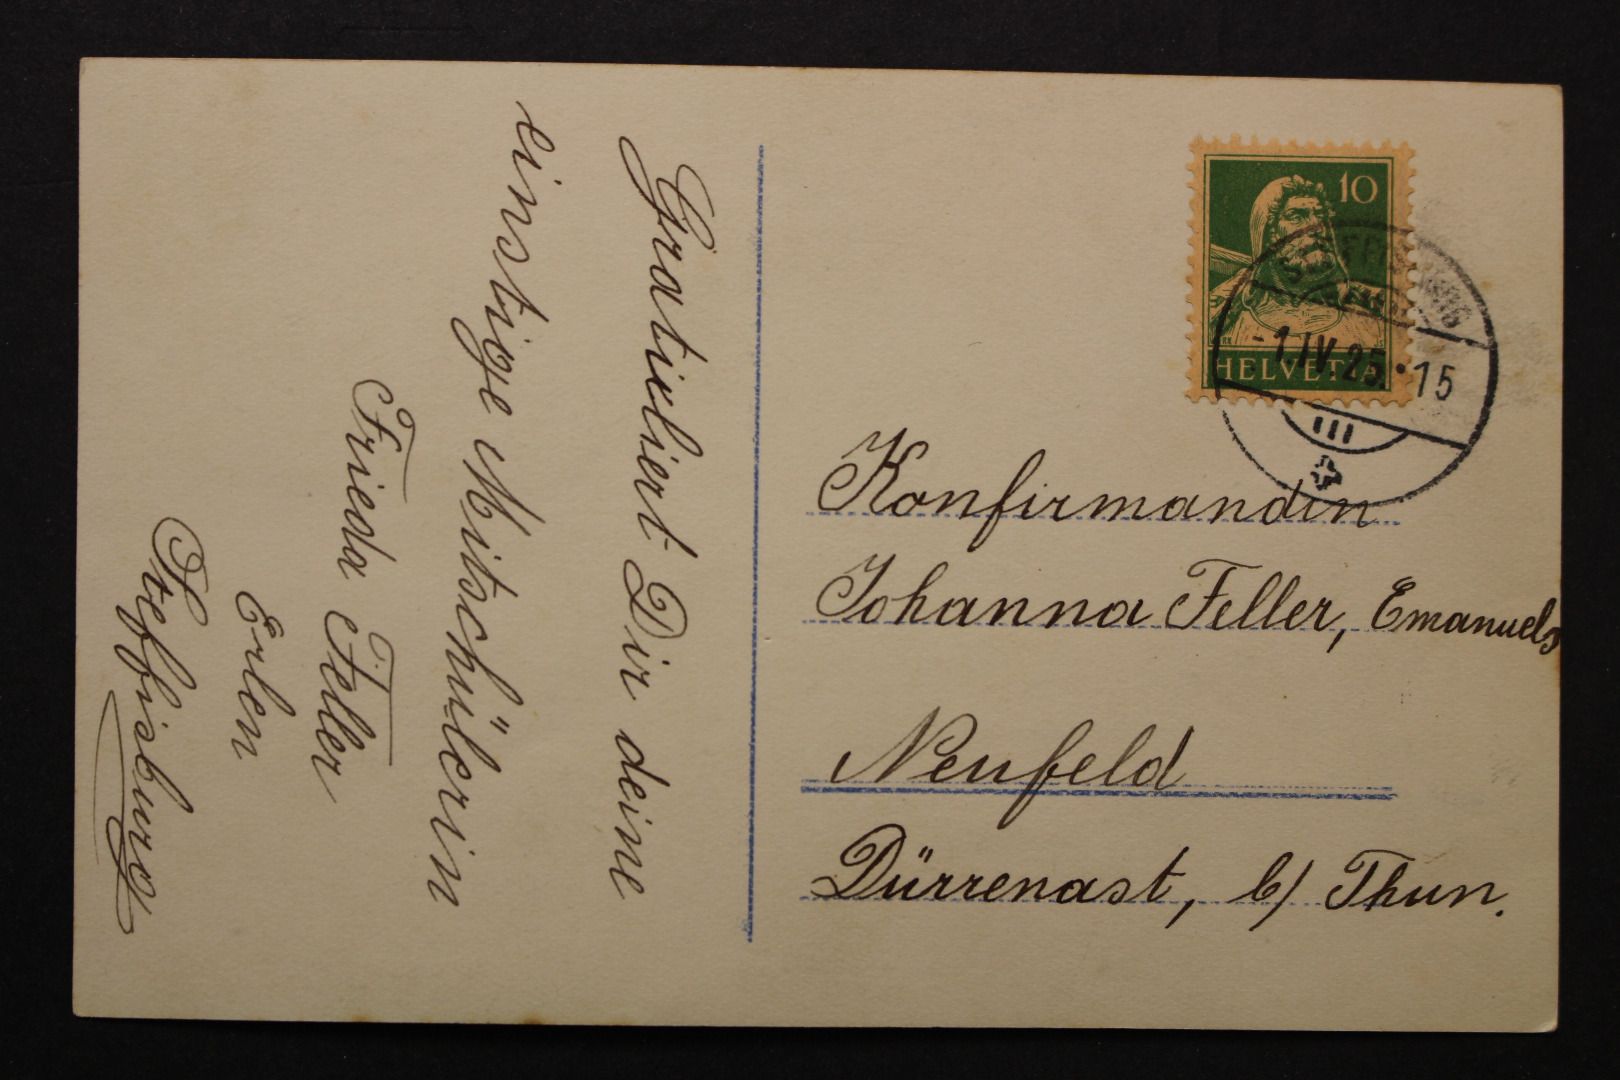 Gratuliert Dir deine
einstige Mitschülerin
Frieda Feller
Erlen
Steffisburg
10
HELVETIA
STEFFISBURG
-1.IV.25.•15
Konfirmandin
Johanna Feller, Emanuels
Neufeld
Dürrenast, b/ Thun.